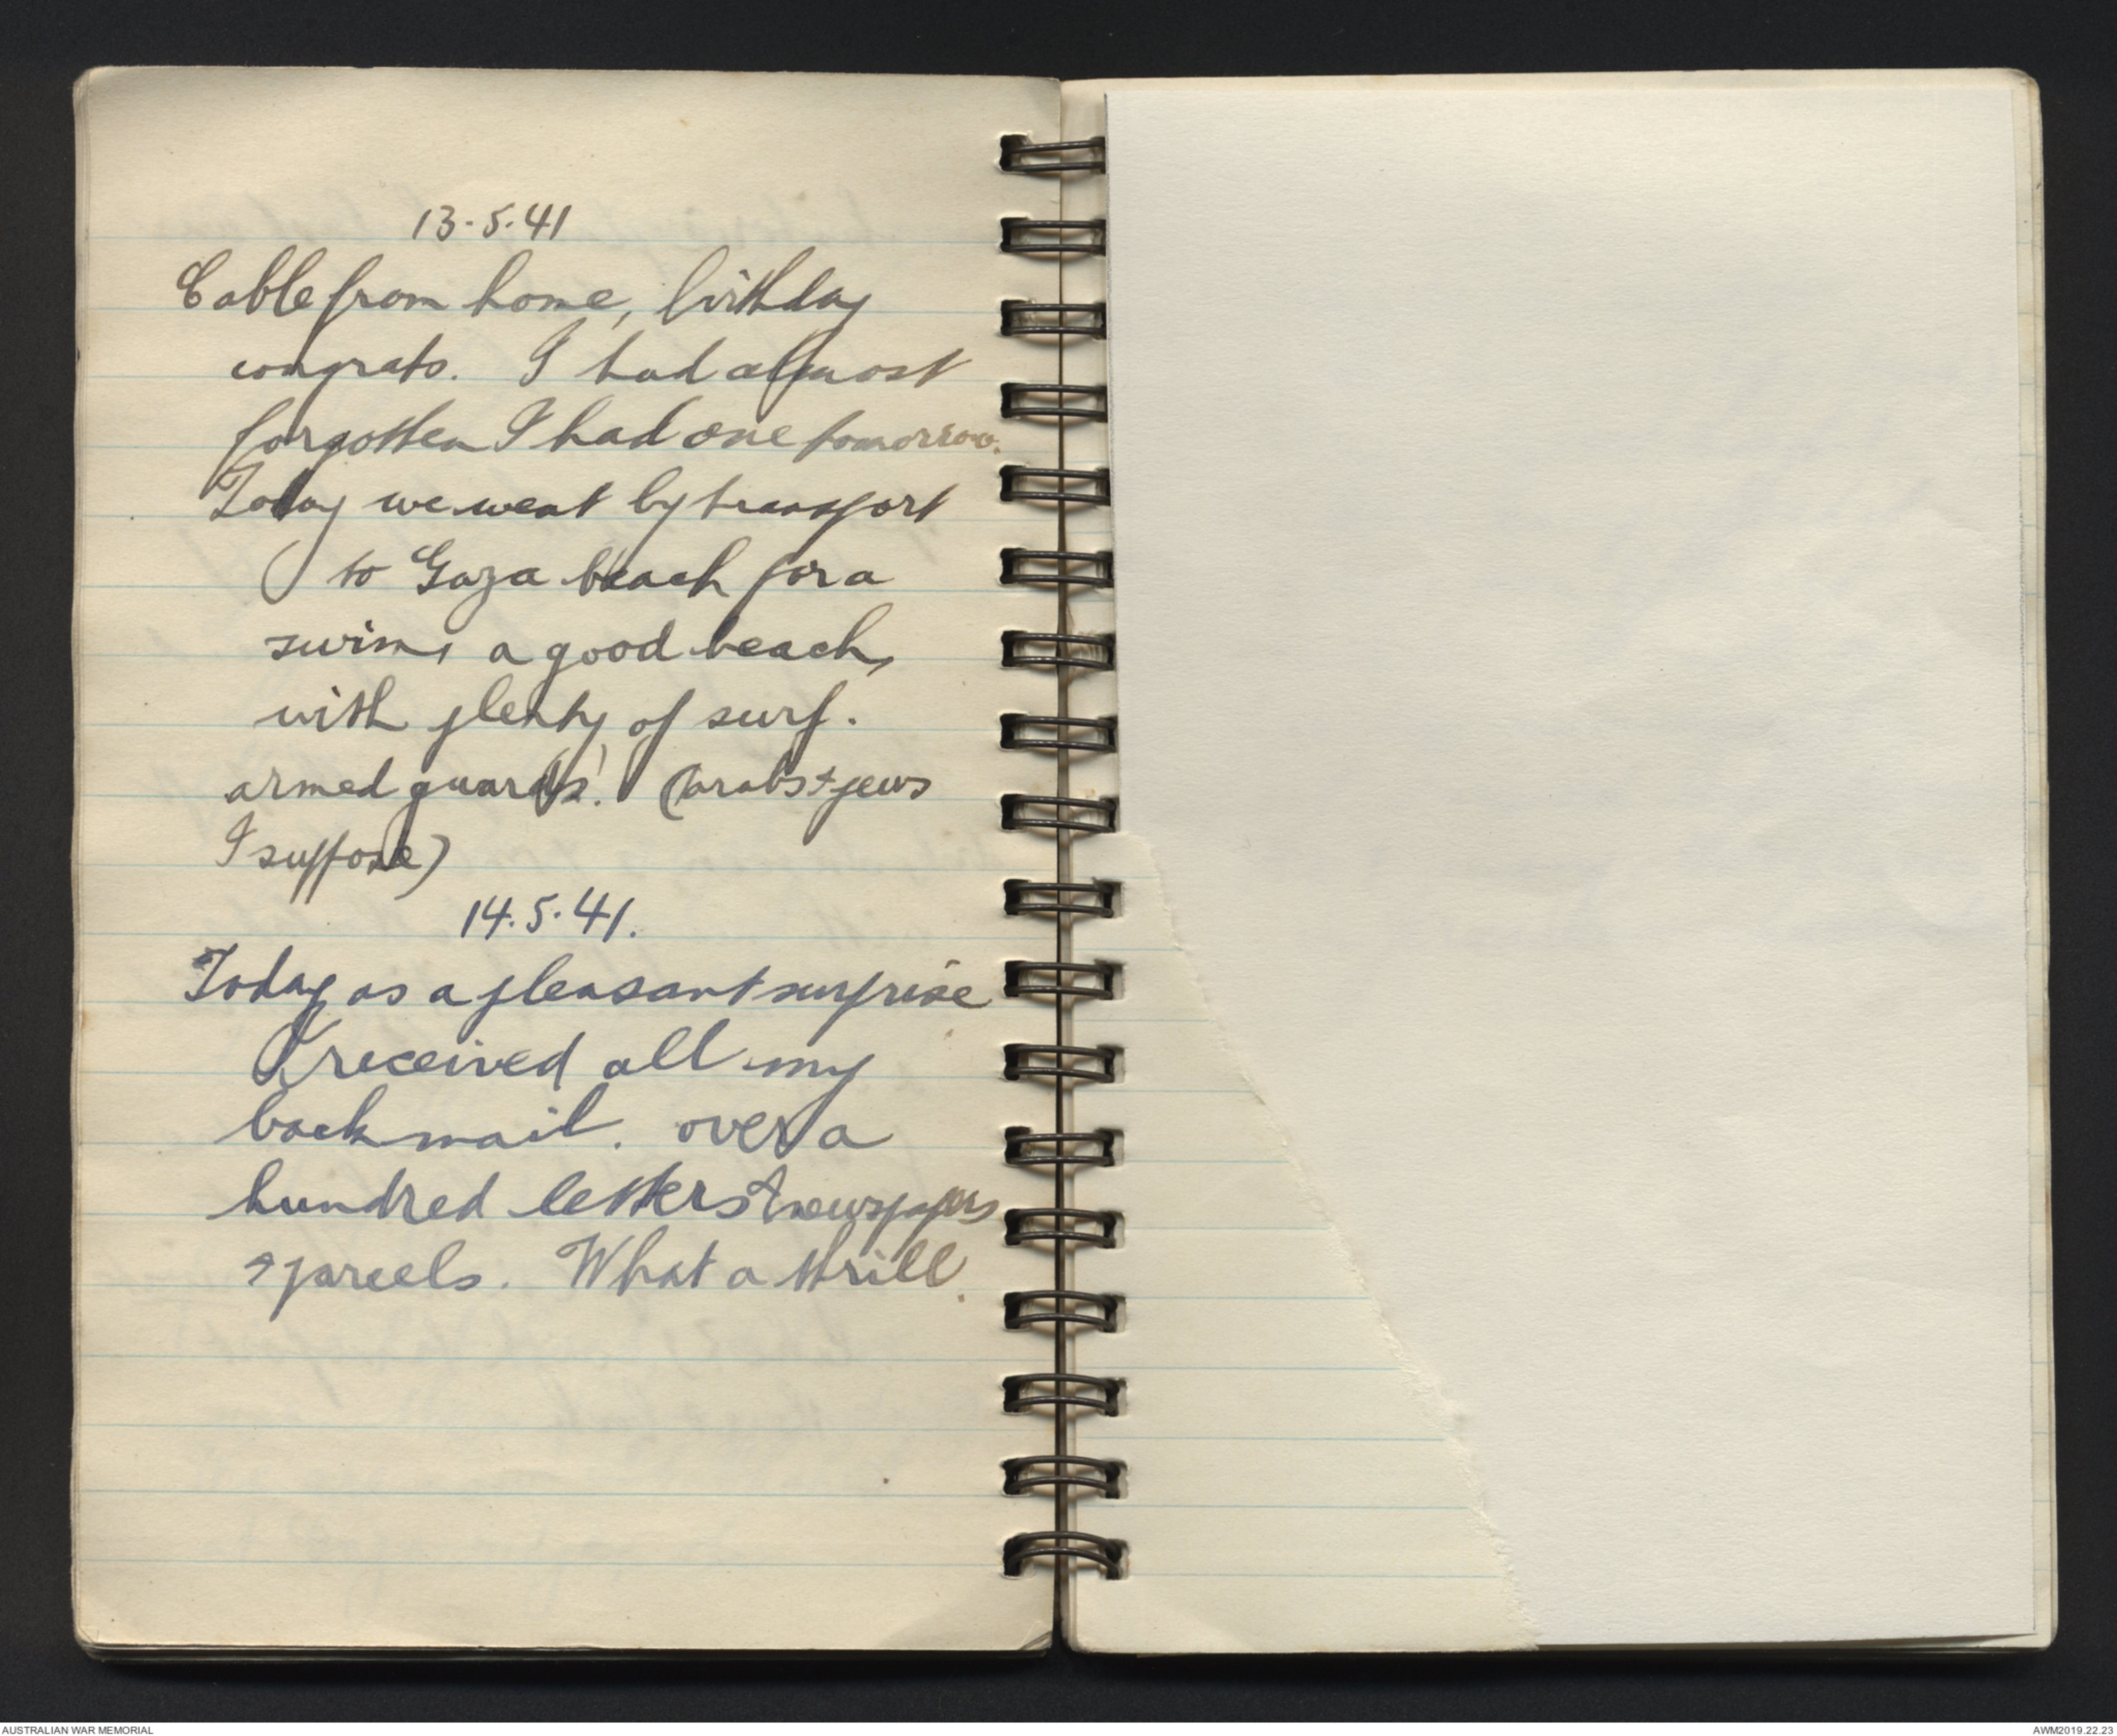 13-5-41
Cable from home, birthday
congrats. I had almost
forgotten I had one tomorrow.
Today we went by transport
to Gaza beach for a
swim, a good beach,
with plenty of surf.
armed guards! (arabs + jews
I suppose)
14.5.41.
Today as a pleasant surprise
I received all my
back mail. over a
hundred letters + newspapers
+ parcels. What a thrill.
AUSTRALIAN WAR MEMORIAL
AWM2019.22.23